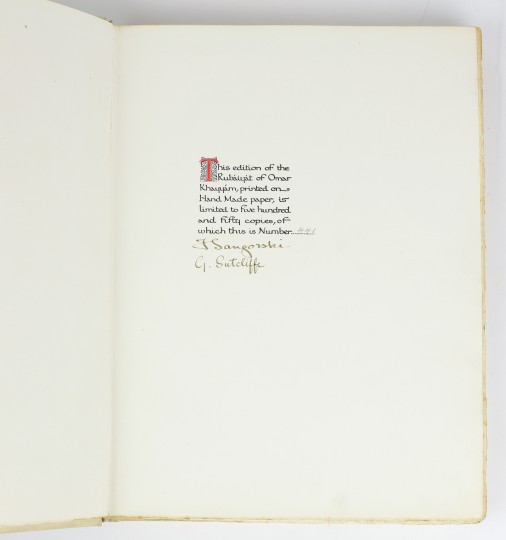 This edition of the
Rubáiyát of Omar
Khayyám, printed on
Hand Made paper, is
limited to five hundred
and fifty copies, of
which this is Number 441
F Sangorski
G. Sutcliffe